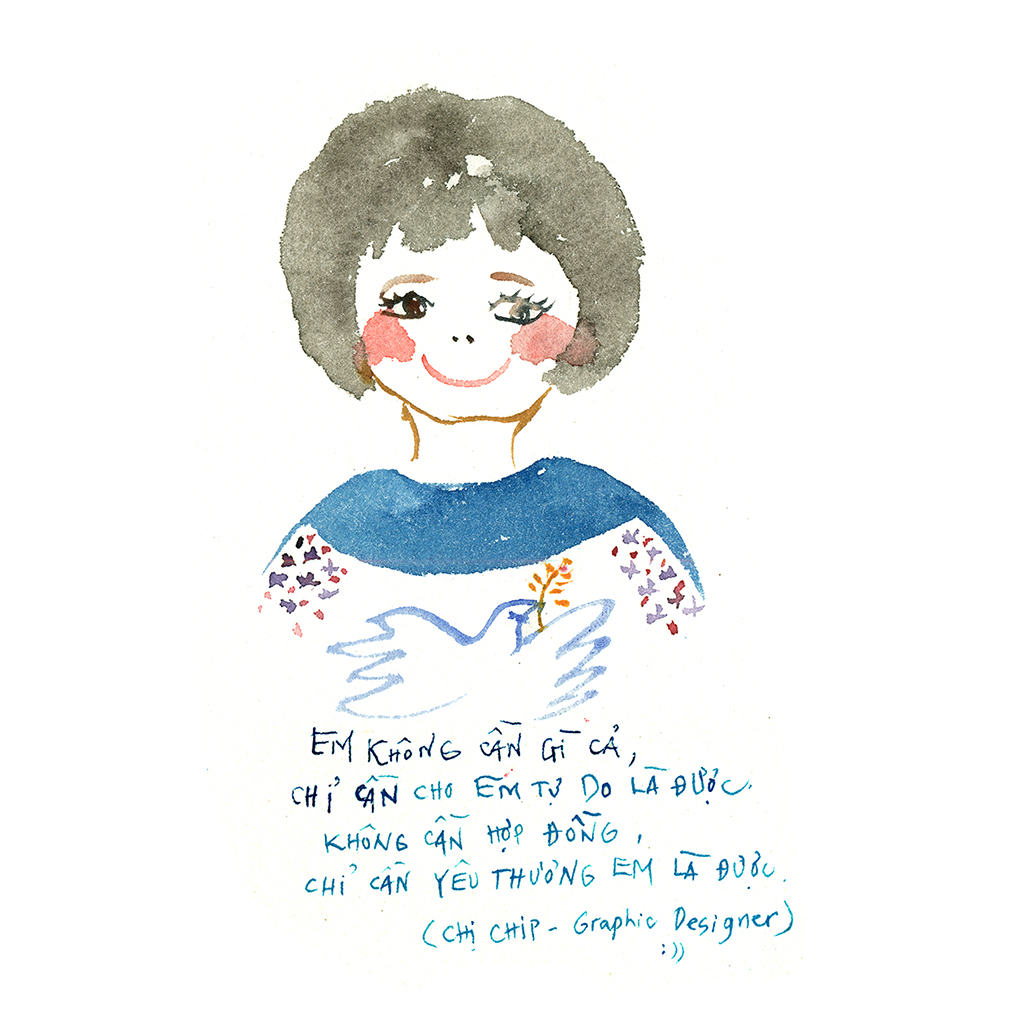 EM KHÔNG CẦN GÌ CẢ,
CHỈ CẦN CHO EM TỰ DO LÀ ĐƯỢC.
KHÔNG CẦN HỢP ĐỒNG,
CHỈ CẦN YÊU THƯƠNG EM LÀ ĐƯỢC.
(CHỊ CHIP - Graphic Designer)
:))